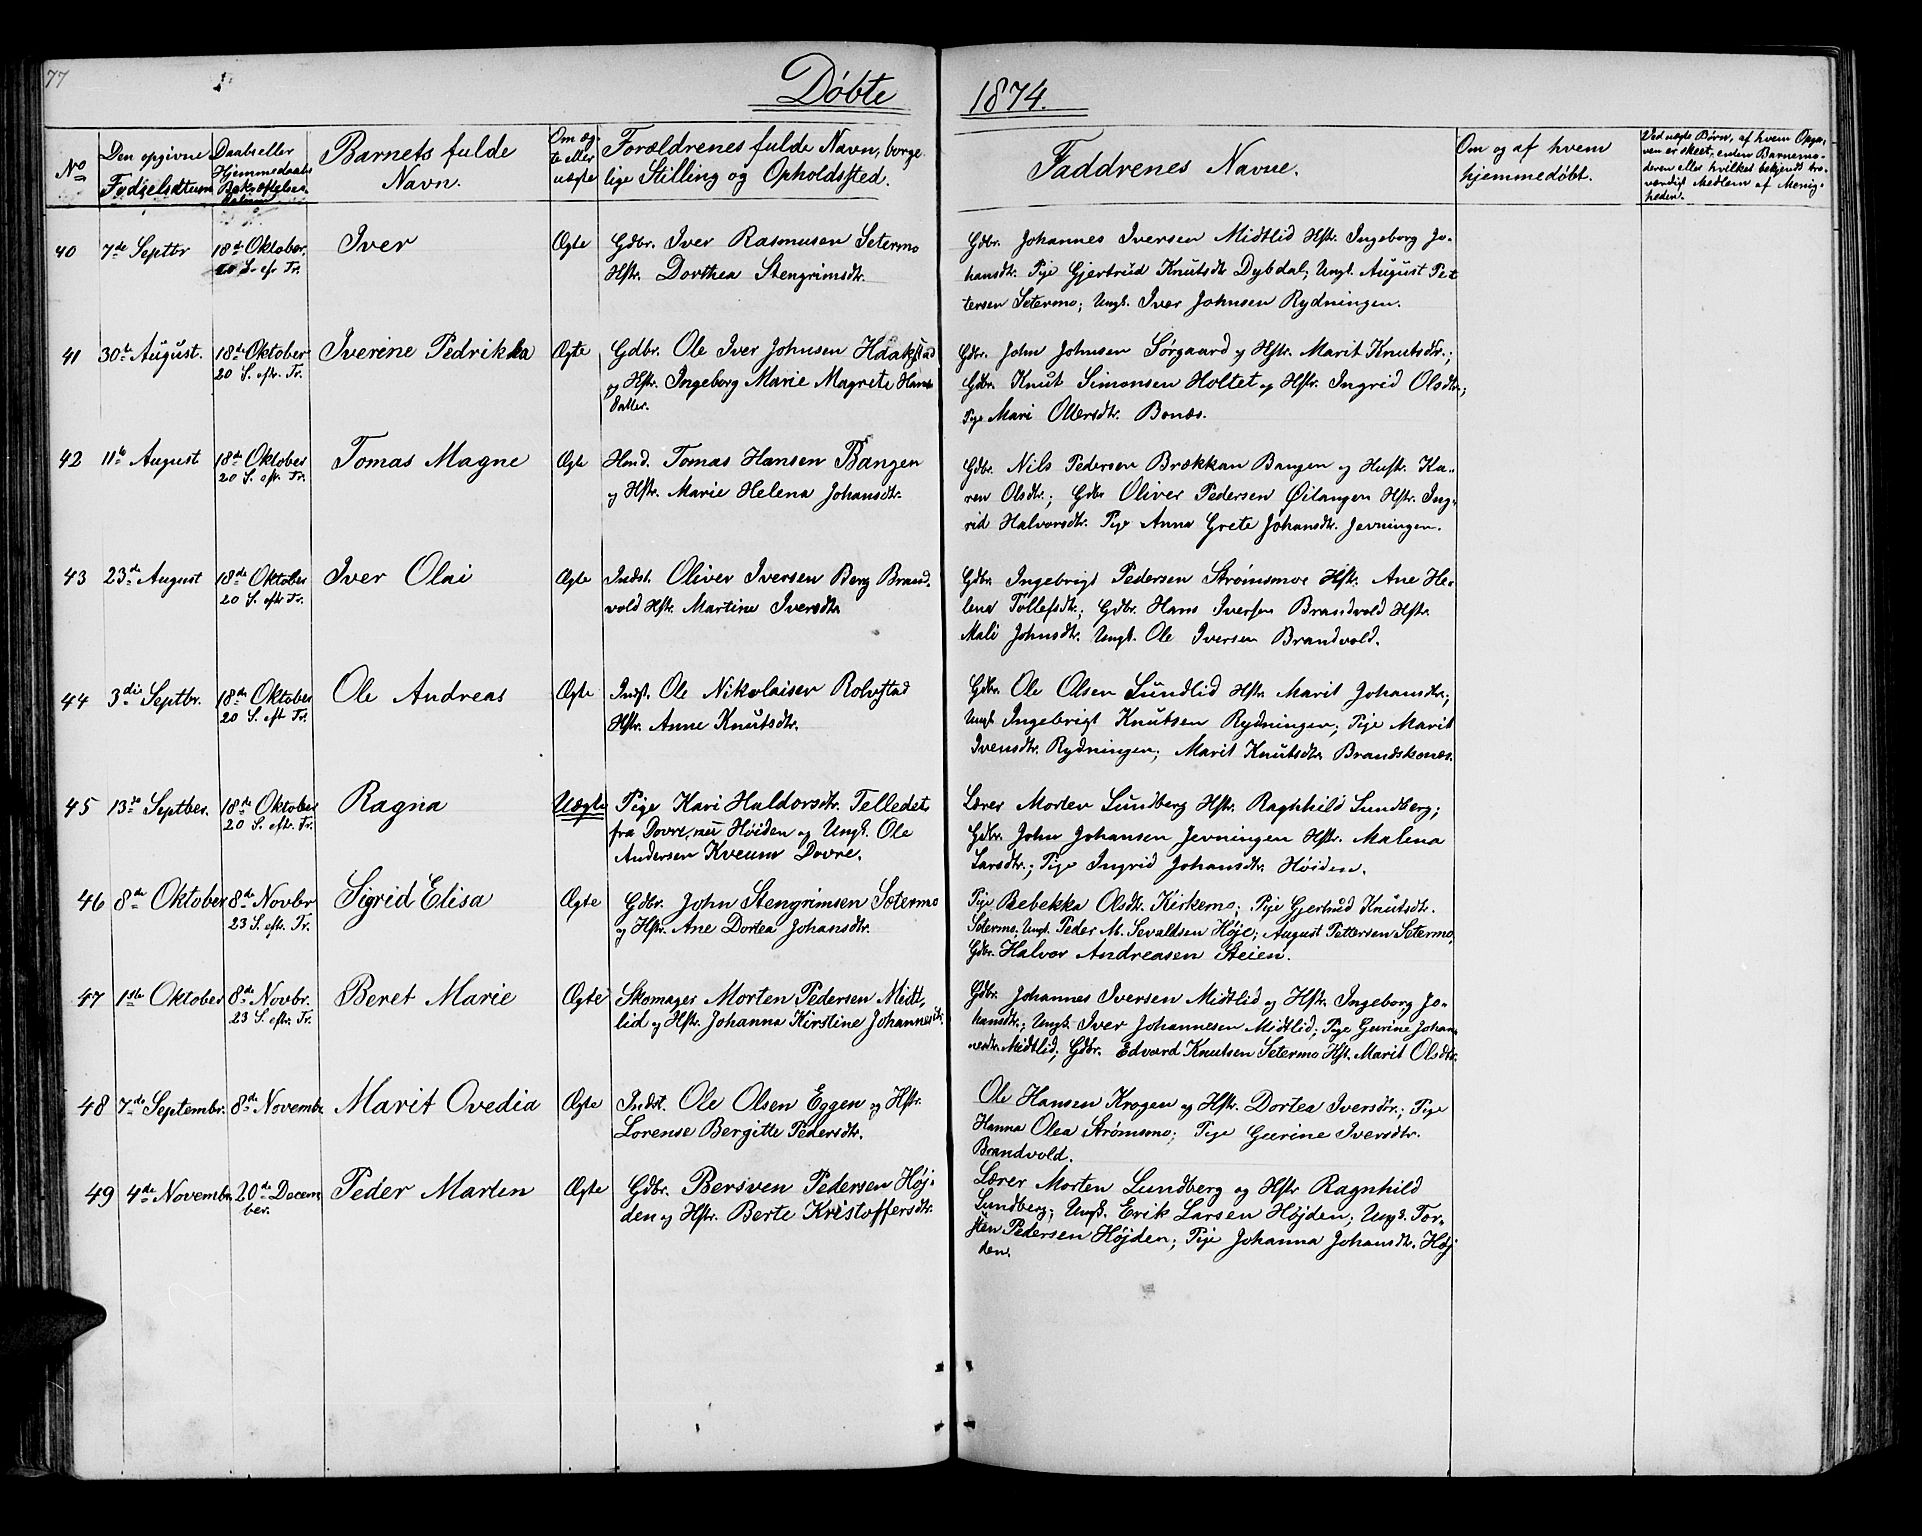 77
Døbte 1874.
No
Den opgivne Fødselsdatum
Daabs eller Hjemmedaabs Bekræftelses datum
Barnets fulde Navn.
Om æg- te eller uægte
Forældrenes fulde Navn, borge- lige Stilling og Opholdssted.
Faddrenes Navne.
Om og af hvem hjemmedøbt.
Ved uægte Børn, af hvem Opga- ven er skeet, enten Barnemo- deren eller hvilket bekjendt tro- værdigt Medlem af Menig- heden.
40 7de Septbr 18de Oktober. 20 S. efr Tr. Iver Ægte
Gdbr. Iver Rasmusen Setermo
Hstr. Dorthea Stengrimsdtr.
Gdbr. Johannes Iversen Midtlid Hstr. Ingeborg Jo-
hansdtr. Pige Gjertrud Knutsdtr Dybdal; Ungk. August Pet
tersen Setermo; Ungk. Iver Johnsen Rydningen.
41 30te August. 18de Oktober 20 S. eftr. Tr. Iverine Pedrikka Ægte
Gdbr. Ole Iver Johnsen Haakstad
og Hstr. Ingeborg Marie Magrete Hans
datter.
Gdbr. John Johnsen Sørgaard og Hstr. Marit Knutsdtr.;
Gdbr. Knut Simonsen Holtet og Hstr. Ingrid Olsdtr.;
Pige Mari Ollersdtr. Bonæs.
42 11te August 18de Oktober 20 S. eftr. Tr. Tomas Magne Ægte
Hmd. Tomas Hansen Bangen
og Hstr. Marie Helena Johansdtr.
Gdbr. Nils Pedersen Brækkan Bangen og Hustr. Ka-
ren Olsdtr.; Gdbr Oliver Pedersen Øilangen Hstr. Ing-
rid Halvorsdtr. Pige Anna Grete Johansdtr. Jevningen.
43 23de August 18de Oktober 20 S. eftr Tr. Iver Olai Ægte
Indst. Oliver Iversen Berg Brand-
vold Hstr. Martine Iversdtr
Gdbr. Ingebrigt Pedersen Strømsmoe Hstr. Ane He-
lena Tollefsdtr.; Gdbr. Hans Iversen Brandvold Hstr.
Mali Johnsdtr. Ungk. Ole Iversen Brandvold.
44 3die Septbr. 18de Oktober 20 S. eft Tr. Ole Andreas Ægte
Indst. Ole Nikolaisen Rolvstad
Hstr. Anne Knutsdtr.
Gdbr. Ole Olsen Lundlid Hstr. Marit Johansdtr.;
Ungk. Ingebrigt Knutsen Rydningen; Pige Marit
Ivensdtr. Rydningen; Marit Knutsdtr Brandskonæs.
45 13de Septber. 18de Oktober 20 S. eftr. Tr. Ragna Uægte
Pige Kari Haldorsdtr. Telledet
fra Dovre, nu Høiden og Ungk. Ole
Andersen Kveum Dovre.
Lærer Morten Lundberg Hstr. Ragnhild Lundberg;
Gdbr. John Johansen Jevningen Hstr. Malena
Larsdtr.; Pige Ingrid Johansdtr. Høiden.
46 8de Oktober 8de Novbr 23 S. eftr. Tr. Sigrid Elisa Ægte
Gdbr. John Stengrimsen Setermo
og Hstr. Ane Dortea Johansdtr.
Pige Rebekka Olsdtr. Kirkemo; Pige Gjertrud Knutsdtr.
Setermo, Ungk. Peder M. Sevaldsen Høje; August Pettersen Setermo,
Gdbr. Halvor Andreasen Steien.
47 1ste Oktober 8de Novbr. 23 S. eftr. Tr. Beret Marie Ægte
Skomager Morten Pedersen Midt-
lid og Hstr. Johanna Kirstine Johannesdtr.
Gdbr. Johannes Iversen Midtlid og Hstr. Ingeborg Jo-
hansdtr.; Ungk. Iver Johannesen Midtlid; Pige Gurine Johan
nesdtr. Midtlid; Gdbr. Edvard Knutsen Setermo Hst. Marit Olsdtr.
48 7de Septembr. 8de Novembr. Marit Ovedia Ægte
Indst. Ole Olsen Eggen og Hstr.
Lorense Bergitte Pedersdtr.
Ole Hansen Krogen og Hstr. Dortea Iversdtr.; Pige
Hanna Olea Strømsmo; Pige Gurine Iversdtr.
Brandvold.
49 4de Novembr. 20de Decem ber. Peder Marten Ægte
Gdbr. Bersven Pedersen Høj-
den og Hstr. Berte Kristoffersdtr.
Lærer Morten Lundberg og Hstr Ragnhild
Lundberg; Ungk. Erik Larsen Højden; Ungk. Tor-
sten Pedersen Højden; Pige Johanna Johansdtr. Høj
den.